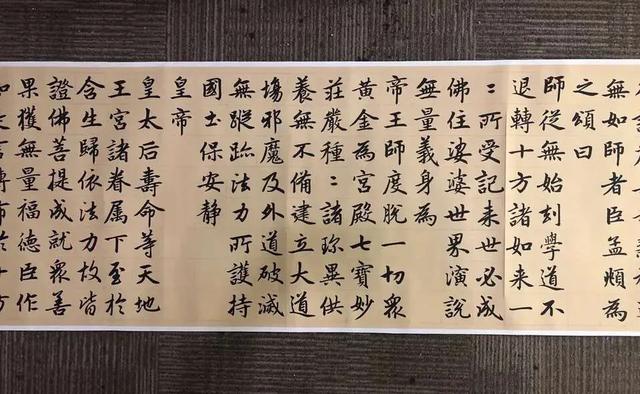 無如師者臣孟頫為
之頌曰
師從無始劫學道不
退轉十方諸如來一
〻所受記來世必成
佛住娑婆世界演說
無量義身為
帝王師度脫一切衆
黃金為宮殿七寶妙
莊嚴種〻諸珎異供
養無不備建立大道
塲邪魔及外道破滅
無蹤跡法力所護持
國土保安静
皇帝
皇太后壽命等天地
王宮諸眷属下至於
含生歸依法力故皆
證佛菩提成就衆善
果獲無量福德臣作
如是言傳布於十方